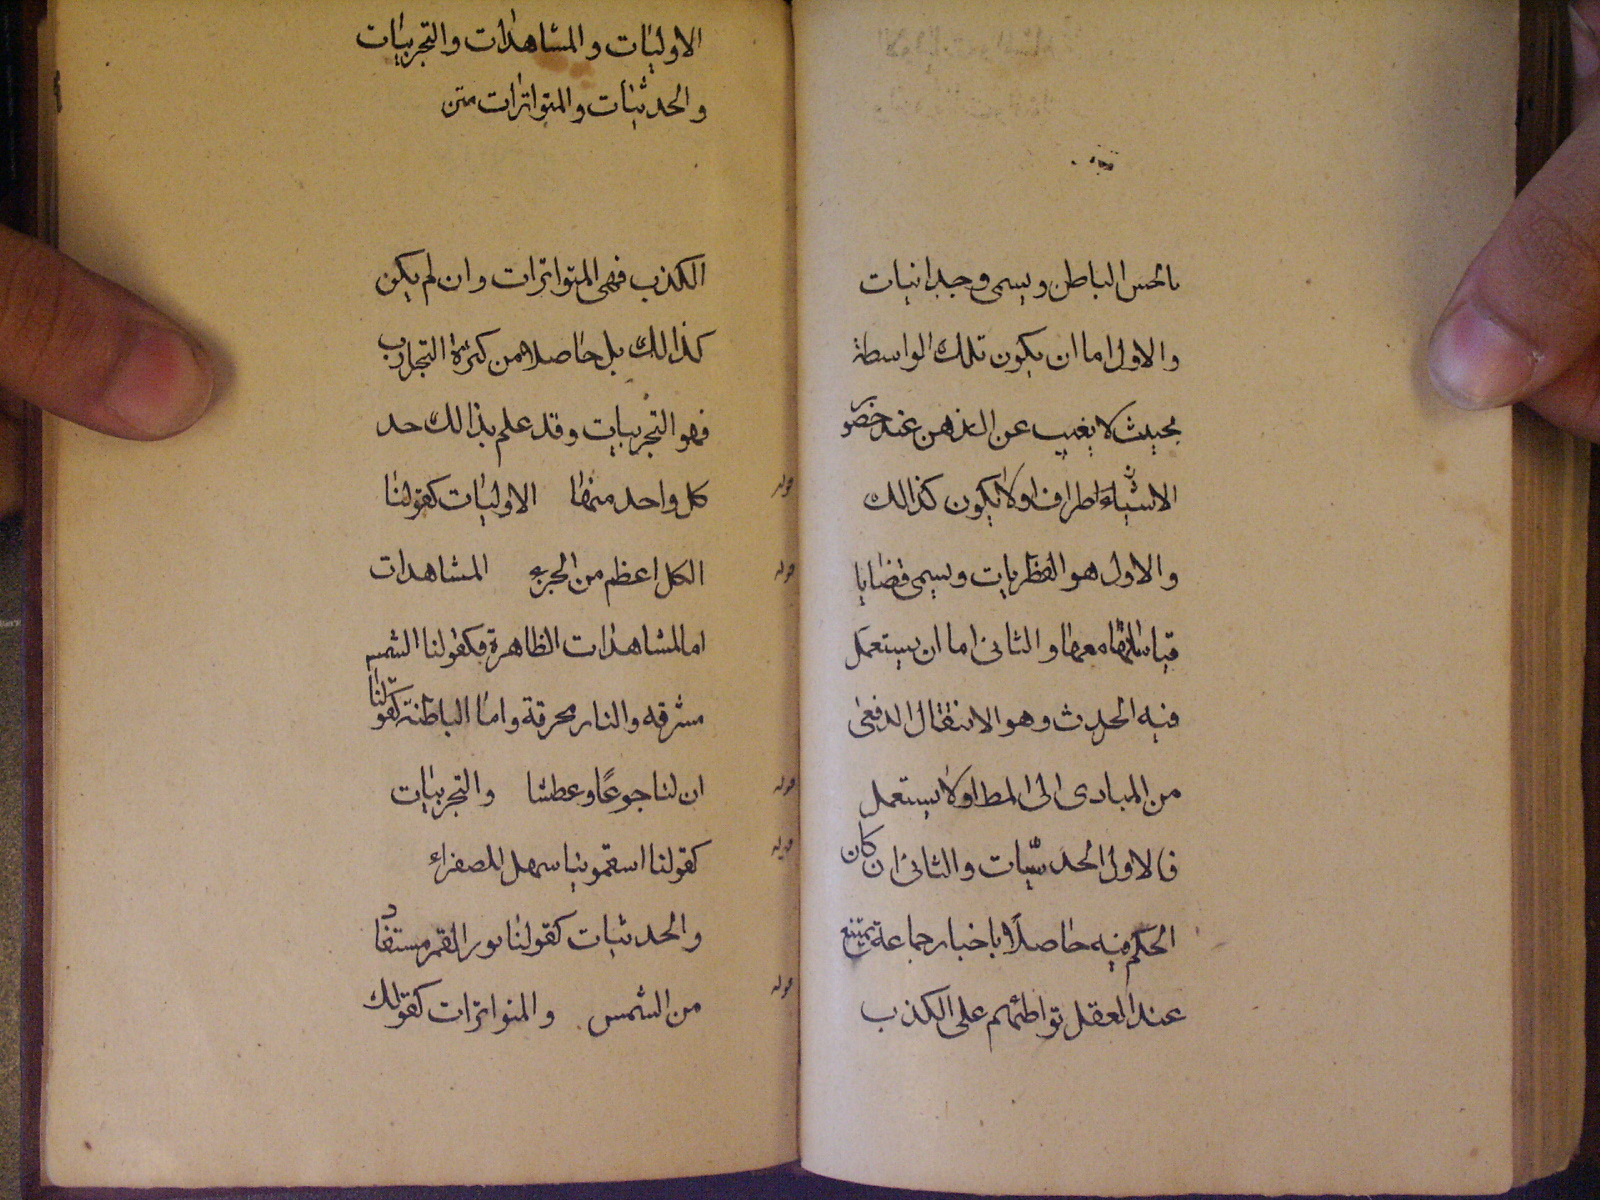 بالحس الباطن ويسمى وجدانيات
والاول اما ان يكون تلك الواسطة
بحيث لا يغيب عن الذهن عند حضور
الاشياء اطراف اولا يكون كذالك
والاول هو الفظريات ويسمى قضايا
قياساتها معها والثانى اما ان يستعمل
فيه الحدث وهو الانتقال الدفعى
من المبادى الى المط اولا يستعمل
فالاول الحدثيات والثانى ان كان
الحكم فيه حاصلا باخبار جماعة يمتنع
عند العقل تواطئهم على الكذب
الاوليات والمشاهدات والتجربيات
والحدثيات والمتواترات متن
الكذب فهى المتواترات وان لم يكن
كذالك بل حاصلا من كثرة التجارب
فهو التجربيات وقد علم بذالك حد
كل واحد منها الاوليات كقولنا
الكل اعظم من الجزء المشاهدات
اما المشاهدات الظاهرة فكقولنا الشمس
مشرقه والنار محرقة واما الباطنة كقولنا
ان لنا جوعا وعطشا والتجربيات
كقولنا اسقمونيا سهل للصفراء
والحدثيات كقولنا نور القمر مستفاد
من الشمس والمتواترات كقولك